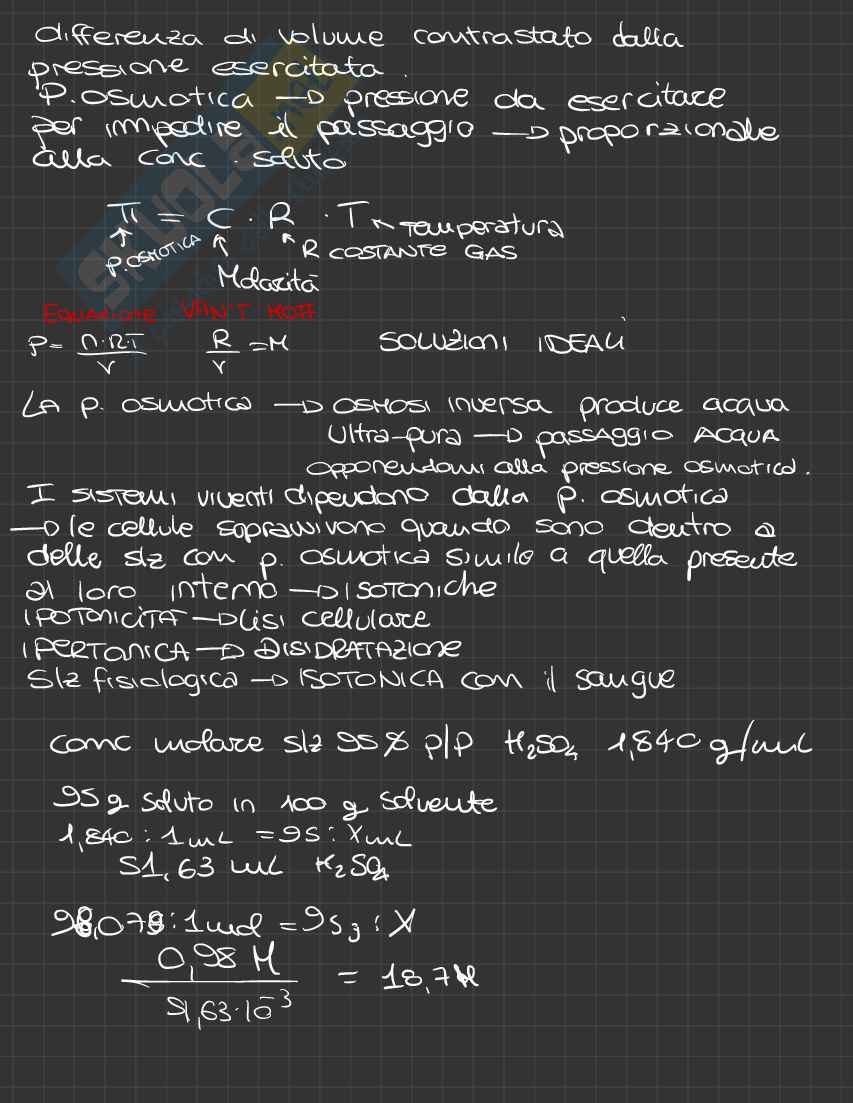 differenza di volume contrastato dalla
pressione esercitata.
P. osmotica → pressione da esercitare
per impedire il passaggio → proporzionale
alla conc. soluto
π = C · R · T ← Temperatura
P. OSMOTICA R COSTANTE GAS
Molarità
EQUAZIONE VAN'T HOFF
P = n·R·T / V R/V = M SOLUZIONI IDEALI
LA p. osmotica → OSMOSI inversa produce acqua
Ultra-pura → passaggio ACQUA
opponendomi alla pressione osmotica.
I sistemi viventi dipendono dalla p. osmotica
→ le cellule sopravvivono quando sono dentro a
delle slz con p. osmotica simile a quella presente
al loro interno → ISOTONICHE
IPOTONICITÀ → Lisi cellulare
IPERTONICA → DISIDRATAZIONE
Slz fisiologica → ISOTONICA con il sangue
conc molare slz 95% p/p H₂SO₄ 1,840 g/mL
95 g soluto in 100 g solvente
1,840 : 1 mL = 95 : X mL
51,63 mL H₂SO₄
: 1 mol = 95 : X
0,98 M / 51,63·10⁻³ = 18,7 M